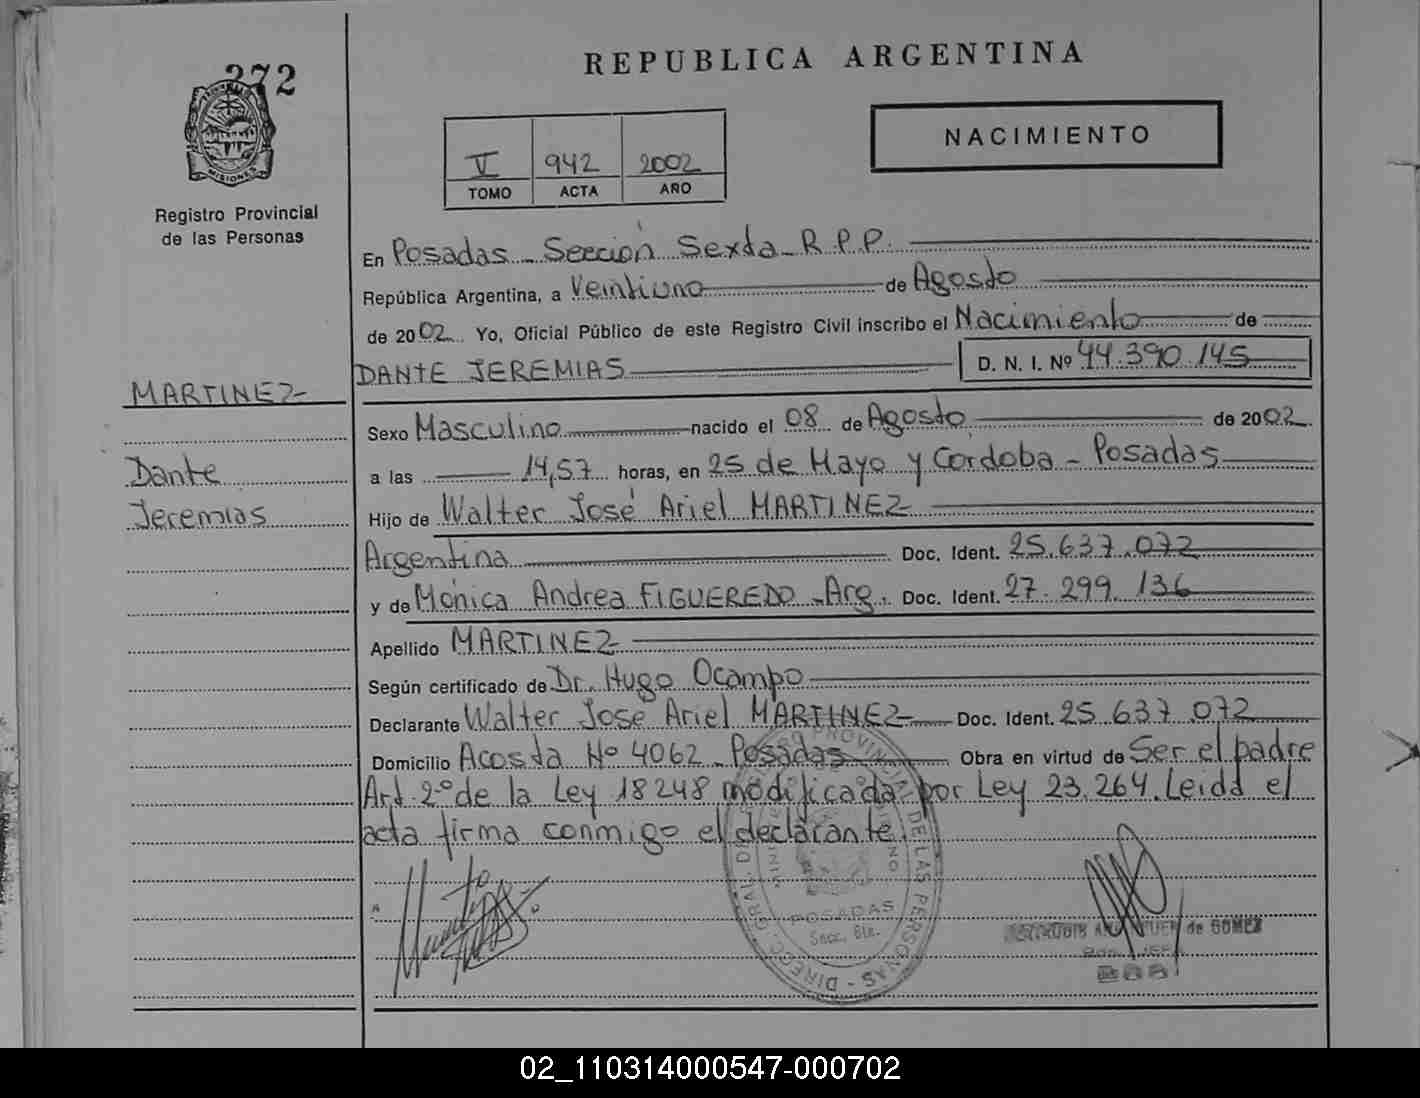 272
MISIONES
Registro Provincial
de las Personas
MARTINEZ
Dante
Jeremias
REPUBLICA ARGENTINA
NACIMIENTO
V 942 2002
TOMO ACTA AÑO
En Posadas - Sección Sexta - R.P.P.
República Argentina, a Veintiuno de Agosto
de 2002 Yo, Oficial Público de este Registro Civil inscribo el Nacimiento de
DANTE JEREMIAS D. N. I. Nº 44.390.145
Sexo Masculino nacido el 08 de Agosto de 2002
a las 14,57 horas, en 25 de Mayo y Córdoba - Posadas
Hijo de Walter José Ariel MARTINEZ
Argentina Doc. Ident. 25.637.072
y de Mónica Andrea FIGUEREDO - Arg. Doc. Ident. 27.299.136
Apellido MARTINEZ
Según certificado de Dr. Hugo Ocampo
Declarante Walter José Ariel MARTINEZ Doc. Ident. 25.637.072
Domicilio Acosta Nº 4062 - Posadas Obra en virtud de Ser el padre
Art. 2º de la Ley 18248 modificada por Ley 23.264. Leida el
acta firma conmigo el declarante.
POSADAS
Secc. 6ta.
de GOMEZ
02_110314000547-000702